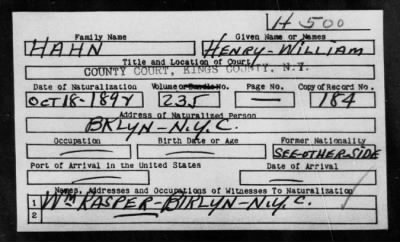 H-500
Family Name Given Name or Names
HAHN HENRY-WILLIAM
Title and Location of Court
COUNTY COURT, KINGS COUNTY, N.Y.
Date of Naturalization Volume or Bundle No. Page No. Copy of Record No.
OCT 18-1894 235 — 184
Address of Naturalized Person
BKLYN-N.Y.C.
Occupation Birth Date or Age Former Nationality
— — SEE-OTHER-SIDE
Port of Arrival in the United States Date of Arrival
— —
Names, Addresses and Occupations of Witnesses To Naturalization
1 Wm KASPER-BKLYN-N.Y.C.
2